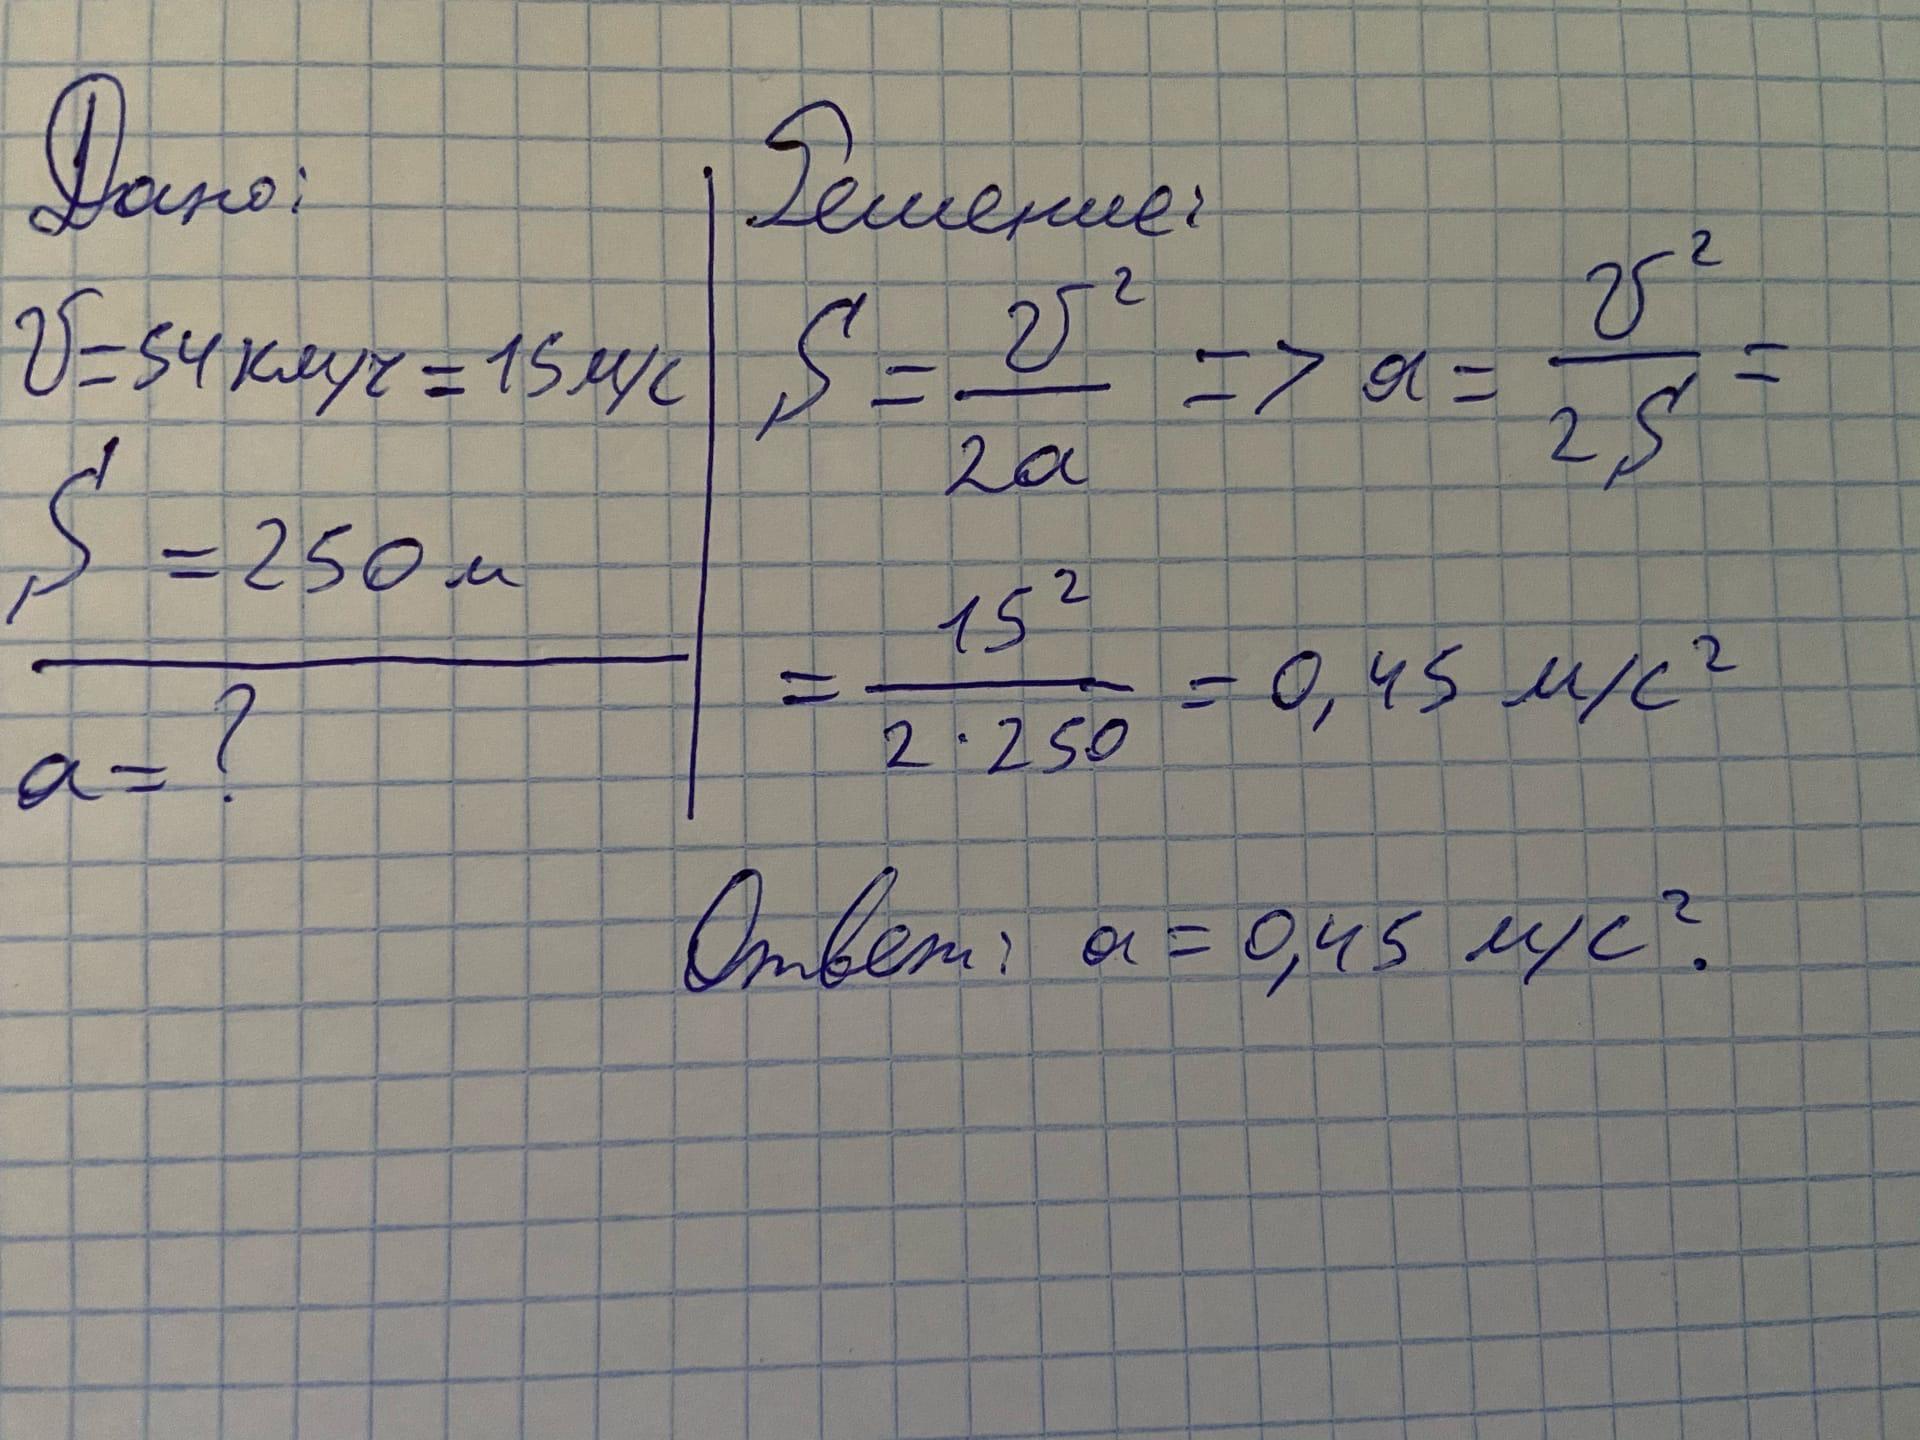 Дано:
υ = 54 км/ч = 15 м/с
S = 250 м
a = ?
Решение:
S = υ² / 2a => a = υ² / 2S =
= 15² / 2 · 250 = 0,45 м/с²
Ответ: a = 0,45 м/с².